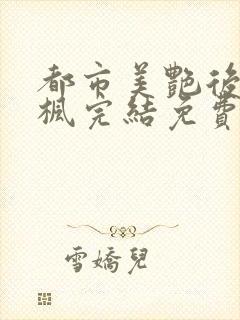 都市美艷後
楓完結免費
雪嬌兒